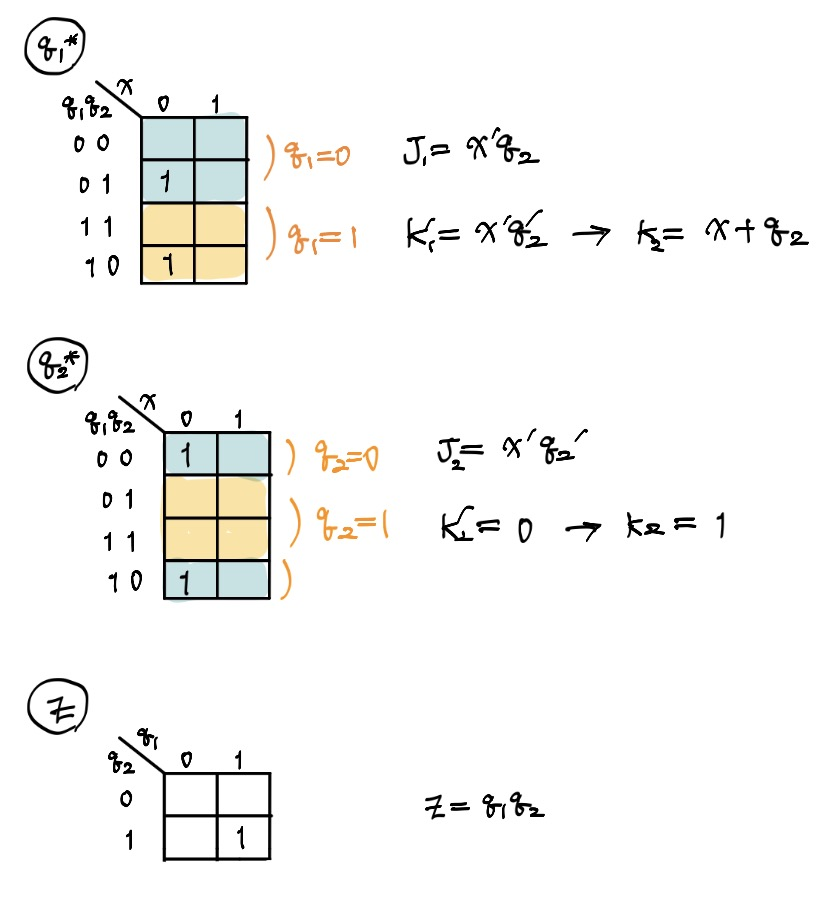 q₁*
x
q₁q₂ 0 1
0 0
0 1 1
1 1
1 0 1
) q₁=0
) q₁=1
J₁= x'q₂
K₁'= x'q₂' → K₂= x+q₂
q₂*
x
q₁q₂ 0 1
0 0 1
0 1
1 1
1 0 1
) q₂=0
) q₂=1
)
J₂= x'q₂'
K₁'= 0 → K₂= 1
Z
q₁
q₂ 0 1
0
1 1
Z= q₁q₂